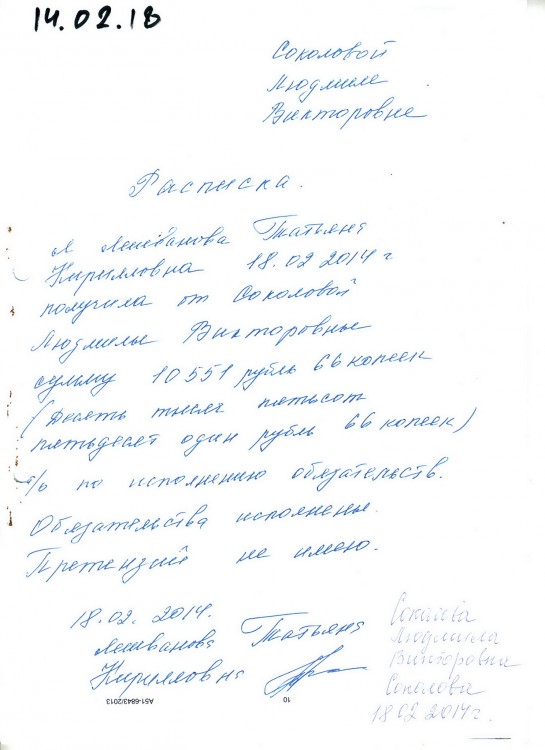 14.02.18
Соколовой
Людмиле
Викторовне
Расписка.
Я Лейванова Татьяна
Кирилловна 18.02 2014 г
получила от Соколовой
Людмилы Викторовны
сумму 10551 рубль 66 копеек
(Десять тысяч пятьсот
пятьдесят один рубль 66 копеек)
по исполнению обязательств.
Обязательства исполнены.
Претензий не имею.
18.02. 2014.
Татьяна
Кирилловна
Людмила
Викторовна
Соколова
18 02 2014г
10
А51-6843/2013